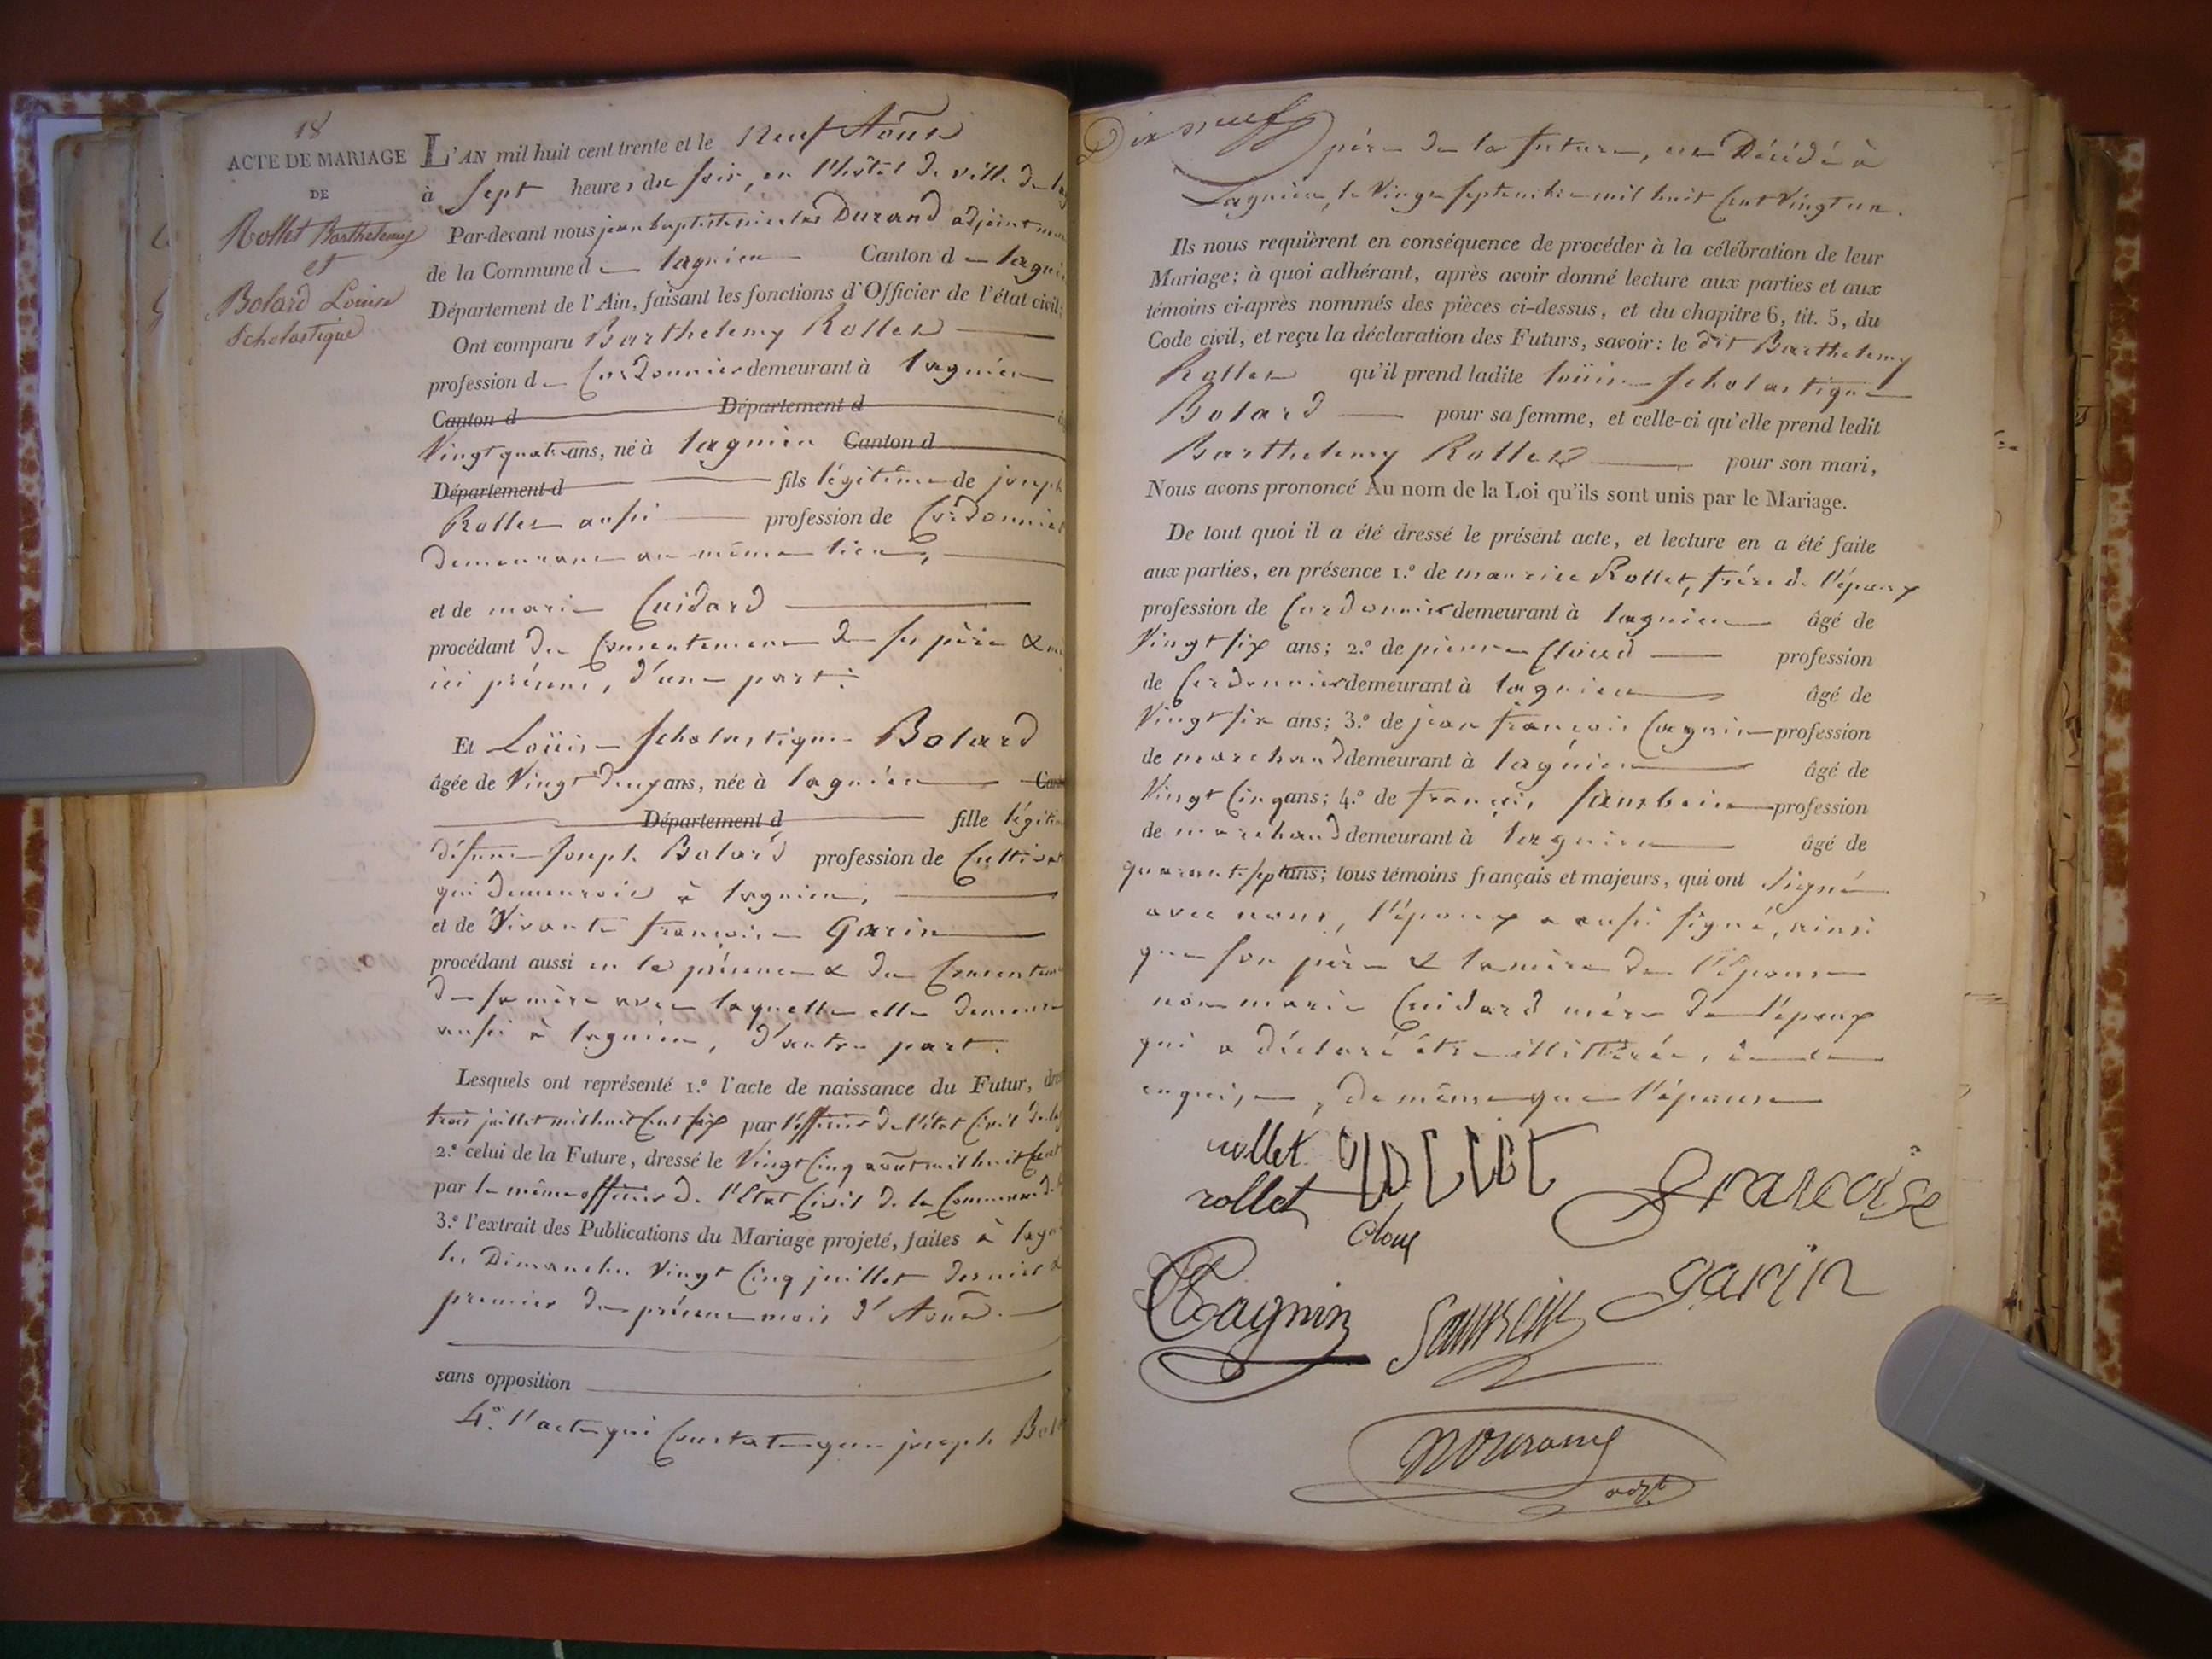 18
ACTE DE MARIAGE
DE
Rollet Barthelemy
et
Bolard Louise
Scholastique
L'AN mil huit cent trente et le Neuf Aoust
à Sept heures du soir, en l'hôtel de ville de lag
Par-devant nous jean baptiste nicolas Durand adjoint
de la Commune de lagnieu Canton de lagni
Département de l'Ain, faisant les fonctions d'Officier de l'état civil;
Ont comparu Barthelemy Rollet
profession de Cordonnier demeurant à lagnieu
Canton d Département d
Vingt quatre ans, né à lagnieu Canton d
Département d fils légitime de joseph
Rollet aussi profession de Cordonnier
demeurant au même lieu,
et de marie Cuidard
procédant du Consentement de ses père &
ici présens, d'une part.
Et Loüise Scholastique Bolard
âgée de Vingt deux ans, née à lagnieu Can
Département d fille légiti
défunt Joseph Bolard profession de Cultivat
qui demeuroit à lagnieu,
et de Vivante françoise Garin
procédant aussi en la présence & du Consentem
de sa mère avec laquelle elle demeure
aussi à lagnieu, d'autre part.
Lesquels ont représenté 1.º l'acte de naissance du Futur, dres
trois juillet mil huit Cent six par l'officier de l'état Civil de lag
2.º celui de la Future, dressé le Vingt Cinq août mil huit Cent
par le même officier de l'Etat Civil de la Commune de
3.º l'extrait des Publications du Mariage projeté, faites à lagn
les Dimanches Vingt Cinq juillet dernier &
premier du présent mois d'Aoust.
sans opposition
4.º l'acte qui Constate que joseph Bol
Dix neuf
père de la future, est Décédé à
Lagnieu, le Vingt Septembre mil huit Cent Vingt un.
Ils nous requièrent en conséquence de procéder à la célébration de leur
Mariage; à quoi adhérant, après avoir donné lecture aux parties et aux
témoins ci-après nommés des pièces ci-dessus, et du chapitre 6, tit. 5, du
Code civil, et reçu la déclaration des Futurs, savoir: le dit Barthelemy
Rollet qu'il prend ladite loüise Scholastique
Bolard pour sa femme, et celle-ci qu'elle prend ledit
Barthelemy Rollet pour son mari,
Nous avons prononcé Au nom de la Loi qu'ils sont unis par le Mariage.
De tout quoi il a été dressé le présent acte, et lecture en a été faite
aux parties, en présence 1.º de maurice Rollet, frère de l'époux
profession de Cordonnier demeurant à lagnieu âgé de
Vingt six ans; 2.º de pierre profession
de Cordonnier demeurant à lagnieu âgé de
Vingt six ans; 3.º de jean françois Cagnin profession
de marchand demeurant à lagnieu âgé de
Vingt Cinq ans; 4.º de françois profession
de marchand demeurant à lagnieu âgé de
quarante sept ans; tous témoins français et majeurs, qui ont signé
avec nous, l'époux a aussi signé, ainsi
que son père & la mère de l'épouse
non marie Cuidard mère de l'époux
qui a déclaré être illittérée, de ce
enquise, de même que l'épouse
rollet rollet francoise
rollet
Cagnin garin
NDurand
adjt